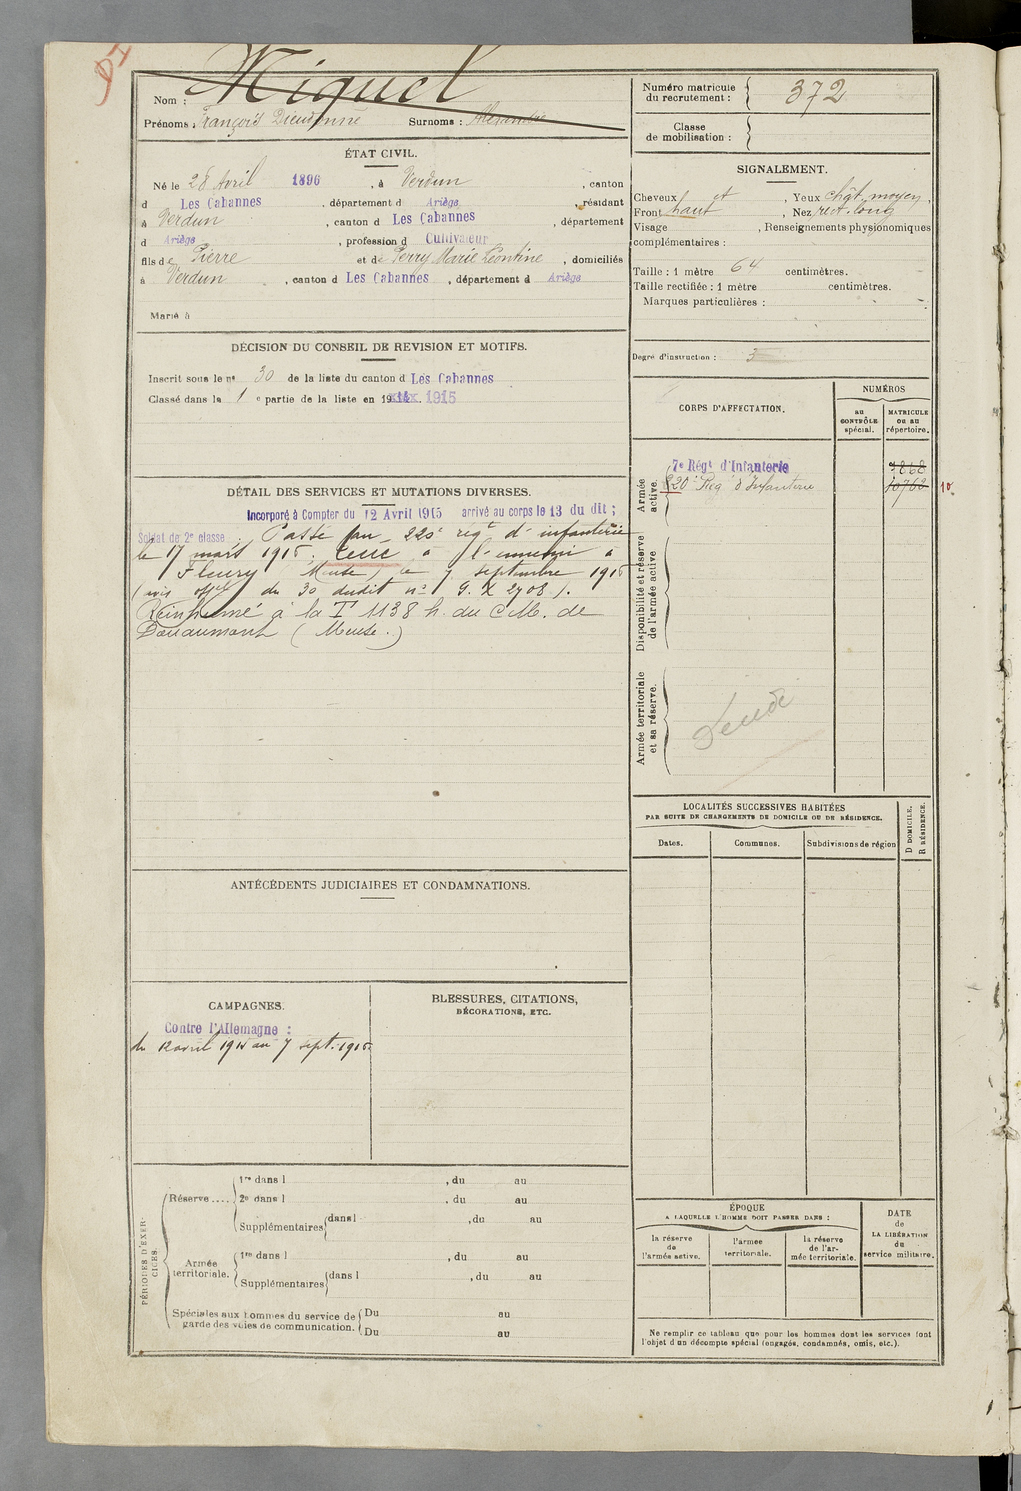 Miquel
Nom :
Prénoms : François Dieudonné Surnoms : Alexandre
Numéro matricule
du recrutement : 372
Classe
de mobilisation :
ÉTAT CIVIL.
Né le 28 Avril 1896, à Verdun, canton
d Les Cabannes, département d Ariège, résidant
à Verdun, canton d Les Cabannes, département
d Ariège, profession d Cultivateur
fils de Pierre et de Perry Marie Léontine, domiciliés
à Verdun, canton d Les Cabannes, département d Ariège
Marié à
SIGNALEMENT.
Cheveux et, Yeux chât. moyen,
Front haut, Nez rect. long
Visage, Renseignements physionomiques
complémentaires :
Taille : 1 mètre 64 centimètres.
Taille rectifiée : 1 mètre centimètres.
Marques particulières :
Degré d'instruction : 3
DÉCISION DU CONSEIL DE REVISION ET MOTIFS.
Inscrit sous le n° 30 de la liste du canton d Les Cabannes
Classé dans la 1e partie de la liste en 1915
CORPS D'AFFECTATION.
NUMÉROS
au
CONTRÔLE
spécial.
MATRICULE
OU AU
répertoire.
Armée
active.
7e Régt d'Infanterie 7868
220e Rég. d'Infanterie 10762 10
Disponibilité et réserve
de l'armée active
Armée territoriale
et sa réserve.
DÉTAIL DES SERVICES ET MUTATIONS DIVERSES.
Incorporé à Compter du 12 Avril 1915 arrivé au corps le 13 du dit ;
Soldat de 2e classe Passé au 220e régt d'infanterie
le 17 mars 1916. Tué à l'ennemi à
Fleury (Meuse) le 7 septembre 1916
(avis offel du 30 dudit n° G. X 2708).
Réinhumé à la T 1138 h. du C.M. de
Douaumont (Meuse.)
LOCALITÉS SUCCESSIVES HABITÉES
PAR SUITE DE CHANGEMENTS DE DOMICILE OU DE RÉSIDENCE.
Dates.
Communes.
Subdivisions de région
D DOMICILE.
R RÉSIDENCE.
ANTÉCÉDENTS JUDICIAIRES ET CONDAMNATIONS.
CAMPAGNES.
Contre l'Allemagne :
du 12 avril 1915 au 7 sept. 1916
BLESSURES, CITATIONS,
DÉCORATIONS, ETC.
PÉRIODES D'EXER-
CICES.
Réserve ....
1re dans l , du au
2e dans l , du au
Supplémentaires dans l , du au
Armée
territoriale.
1re dans l , du au
Supplémentaires dans l , du au
Spéciales aux hommes du service de
garde des voies de communication.
Du au
Du au
ÉPOQUE
A LAQUELLE L'HOMME DOIT PASSER DANS :
la réserve
de
l'armée active.
l'armée
territoriale.
la réserve
de l'ar-
mée territoriale.
DATE
de
LA LIBÉRATION
du
service militaire.
Ne remplir ce tableau que pour les hommes dont les services font
l'objet d'un décompte spécial (engagés, condamnés, omis, etc.).